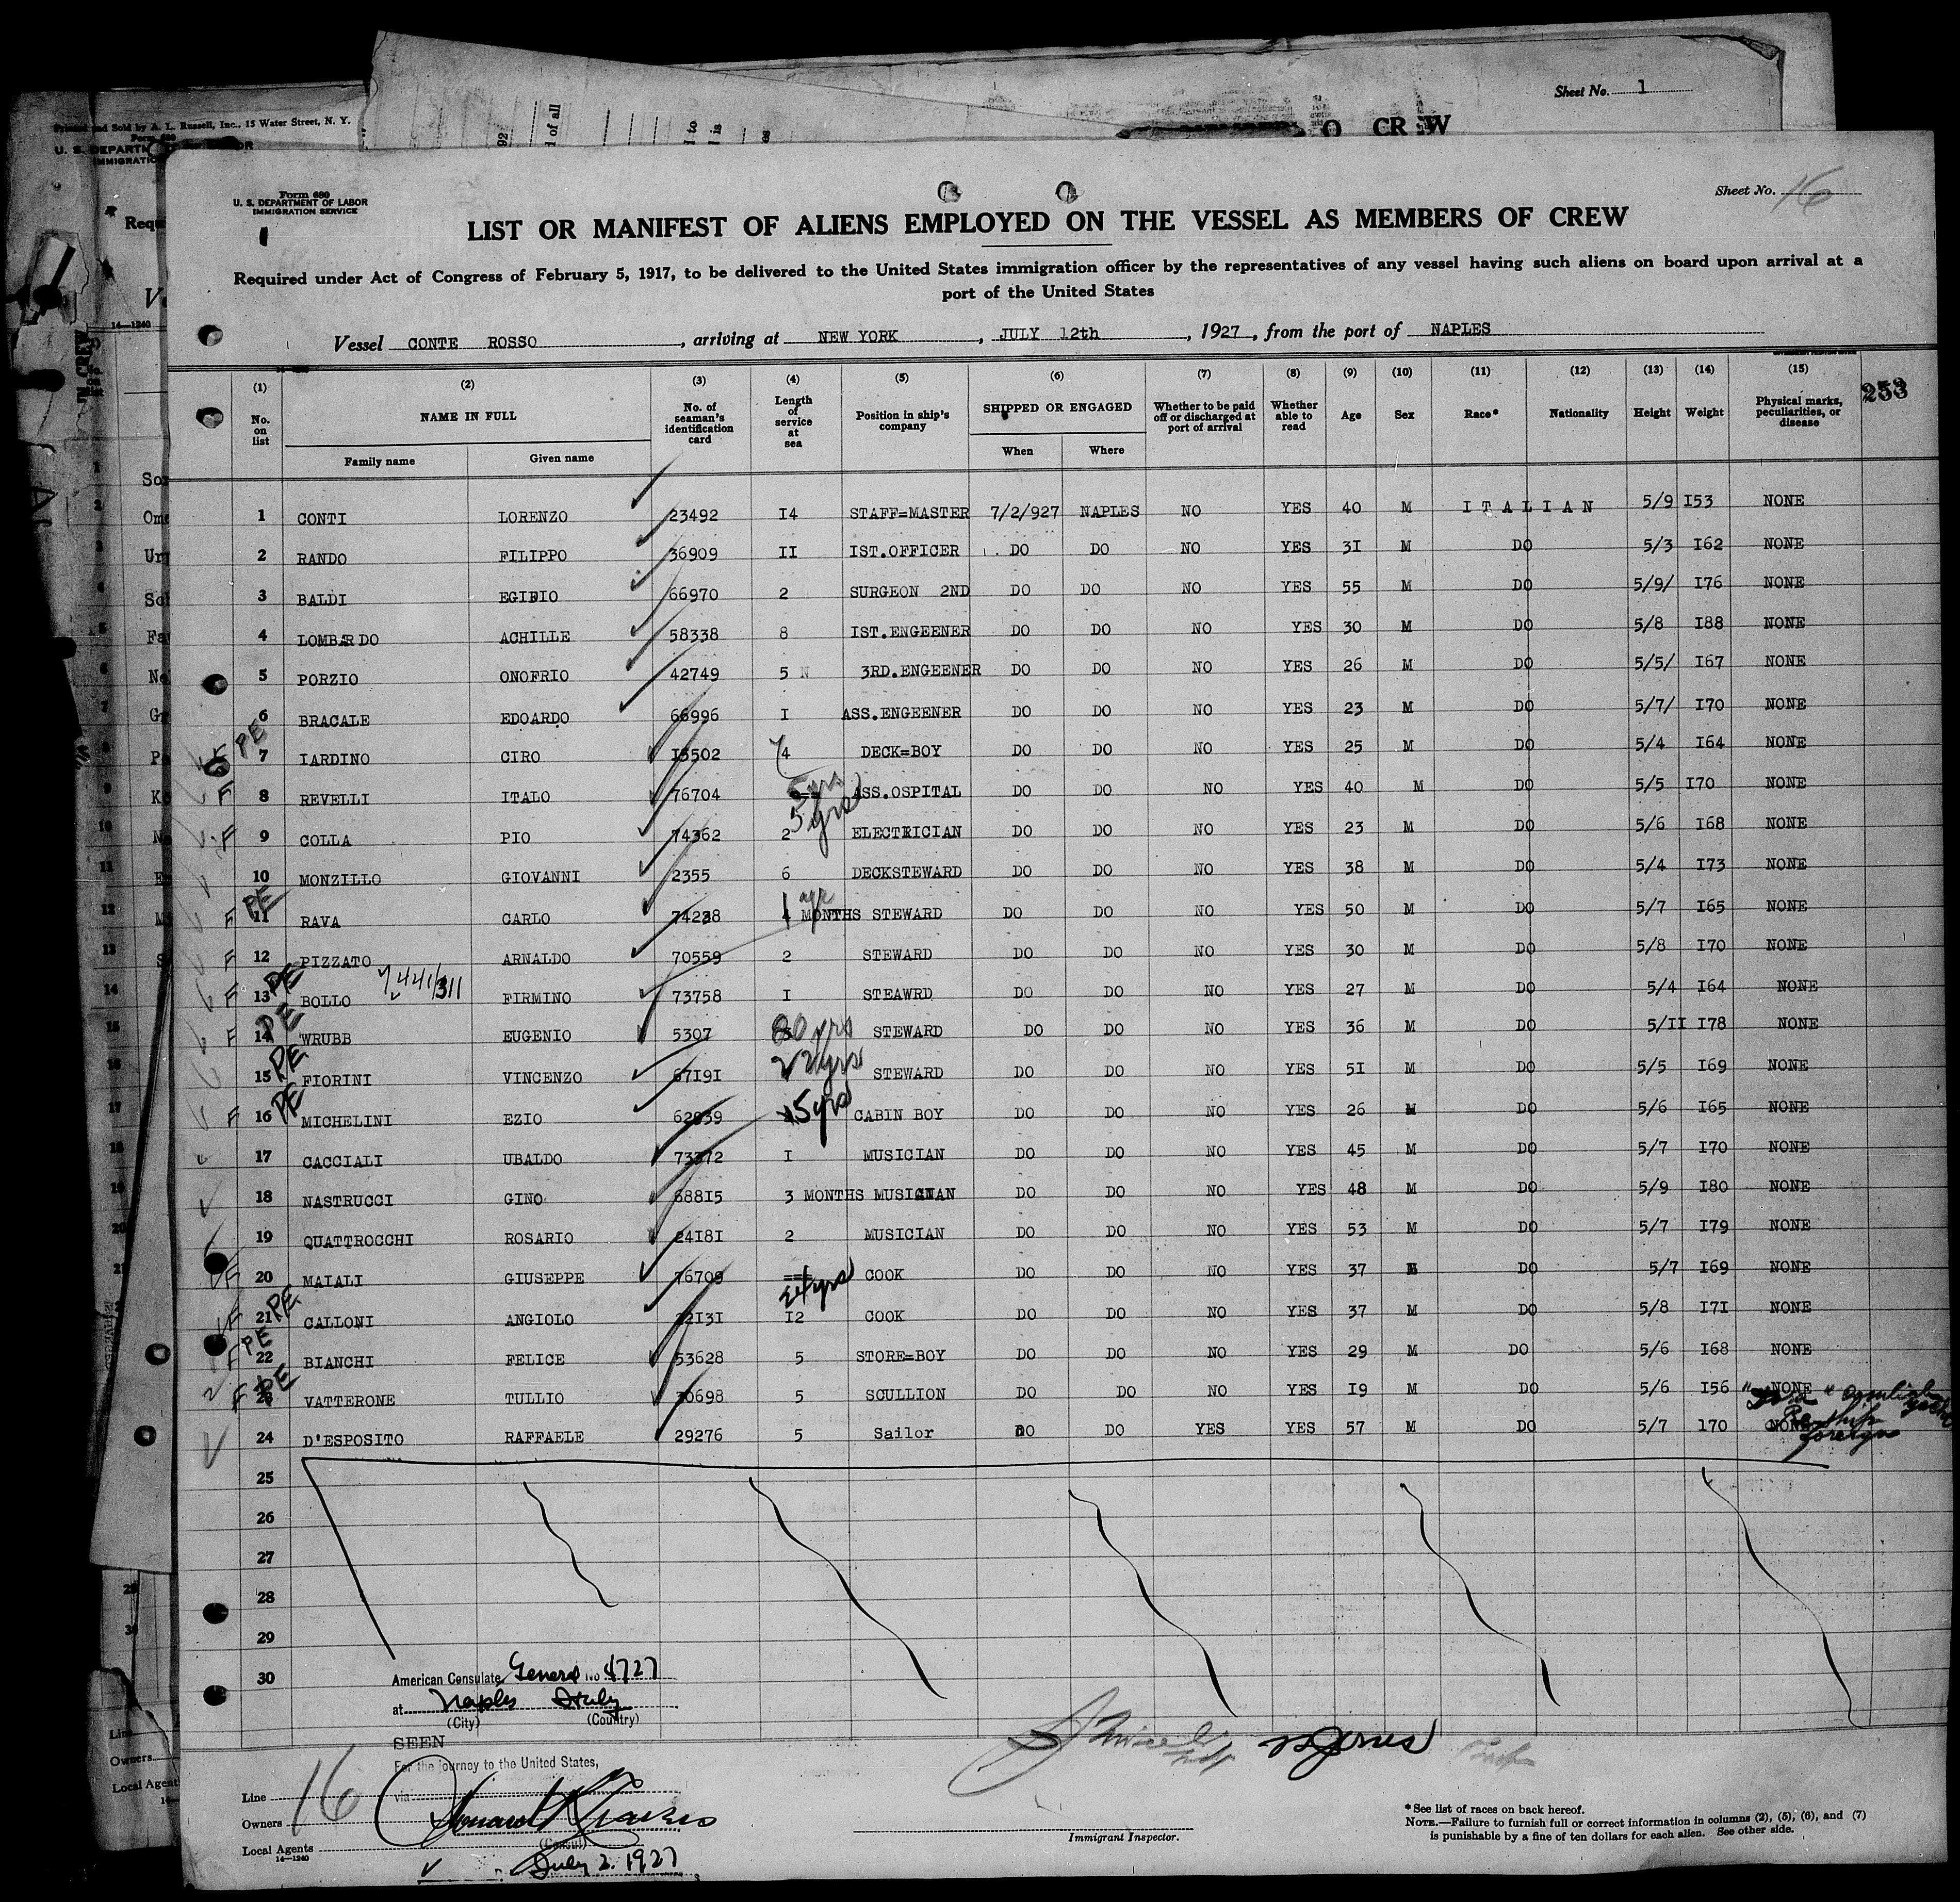 Sheet No. 1
Printed and Sold by A. L. Russell, Inc., 15 Water Street, N. Y.
O CREW
Form 680
U. S. DEPARTMENT OF LABOR
IMMIGRATION SERVICE
Sheet No. 16
LIST OR MANIFEST OF ALIENS EMPLOYED ON THE VESSEL AS MEMBERS OF CREW
Required under Act of Congress of February 5, 1917, to be delivered to the United States immigration officer by the representatives of any vessel having such aliens on board upon arrival at a
port of the United States
Vessel CONTE ROSSO, arriving at NEW YORK, JULY 12th, 1927, from the port of NAPLES
(1) (2) (3) (4) (5) (6) (7) (8) (9) (10) (11) (12) (13) (14) (15)
No. on list NAME IN FULL No. of seaman's identification card Length of service at sea Position in ship's company SHIPPED OR ENGAGED Whether to be paid off or discharged at port of arrival Whether able to read Age Sex Race* Nationality Height Weight Physical marks, peculiarities, or disease 253
Family name Given name When Where
1 CONTI LORENZO 23492 I4 STAFF=MASTER 7/2/927 NAPLES NO YES 40 M ITALIAN 5/9 I53 NONE
2 RANDO FILIPPO 36909 II IST.OFFICER DO DO NO YES 3I M DO 5/3 I62 NONE
3 BALDI EGIDIO 66970 2 SURGEON 2ND DO DO NO YES 55 M DO 5/9/ I76 NONE
4 LOMBARDO ACHILLE 58338 8 IST.ENGEENER DO DO NO YES 30 M DO 5/8 I88 NONE
5 PORZIO ONOFRIO 42749 5 N 3RD.ENGEENER DO DO NO YES 26 M DO 5/5/ I67 NONE
6 BRACALE EDOARDO 66996 I ASS.ENGEENER DO DO NO YES 23 M DO 5/7/ I70 NONE
PE 7 IARDINO CIRO I5502 4 DECK=BOY DO DO NO YES 25 M DO 5/4 I64 NONE
F 8 REVELLI ITALO 76704 5yrs ASS.OSPITAL DO DO NO YES 40 M DO 5/5 I70 NONE
F 9 COLLA PIO 74362 2 5yrs ELECTRICIAN DO DO NO YES 23 M DO 5/6 I68 NONE
10 MONZILLO GIOVANNI 2355 6 DECKSTEWARD DO DO NO YES 38 M DO 5/4 I73 NONE
F PE 11 RAVA CARLO 74238 4 MONTHS STEWARD DO DO NO YES 50 M DO 5/7 I65 NONE
F 12 PIZZATO ARNALDO 70559 2 STEWARD DO DO NO YES 30 M DO 5/8 I70 NONE
F PE 13 BOLLO 7441/311 FIRMINO 73758 I STEAWRD DO DO NO YES 27 M DO 5/4 I64 NONE
F PE 14 WRUBB EUGENIO 5307 20 yrs STEWARD DO DO NO YES 36 M DO 5/II I78 NONE
PE 15 FIORINI VINCENZO 67I9I 22yrs STEWARD DO DO NO YES 5I M DO 5/5 I69 NONE
F PE 16 MICHELINI EZIO 62939 5yrs CABIN BOY DO DO NO YES 26 M DO 5/6 I65 NONE
17 CACCIALI UBALDO 73372 I MUSICIAN DO DO NO YES 45 M DO 5/7 I70 NONE
18 NASTRUCCI GINO 688I5 3 MONTHS MUSICIAN DO DO NO YES 48 M DO 5/9 I80 NONE
19 QUATTROCCHI ROSARIO 24I8I 2 MUSICIAN DO DO NO YES 53 M DO 5/7 I79 NONE
F 20 MAIALI GIUSEPPE 76709 24yrs COOK DO DO NO YES 37 M DO 5/7 I69 NONE
F PE 21 CALLONI ANGIOLO 22I3I I2 COOK DO DO NO YES 37 M DO 5/8 I7I NONE
F PE 22 BIANCHI FELICE 53628 5 STORE=BOY DO DO NO YES 29 M DO 5/6 I68 NONE
F PE 23 VATTERONE TULLIO 30698 5 SCULLION DO DO NO YES I9 M DO 5/6 I56 NONE
24 D'ESPOSITO RAFFAELE 29276 5 Sailor DO DO YES YES 57 M DO 5/7 170 NONE Reship foreign
25
26
27
28
29
30
American Consulate General No 4727
at Naples Italy
(City) (Country)
SEEN
For the journey to the United States,
Line via
16
Owners
(Consul)
Local Agents
14—1240
July 2. 1927
Immigrant Inspector.
*See list of races on back hereof.
NOTE.—Failure to furnish full or correct information in columns (2), (5), (6), and (7)
is punishable by a fine of ten dollars for each alien. See other side.